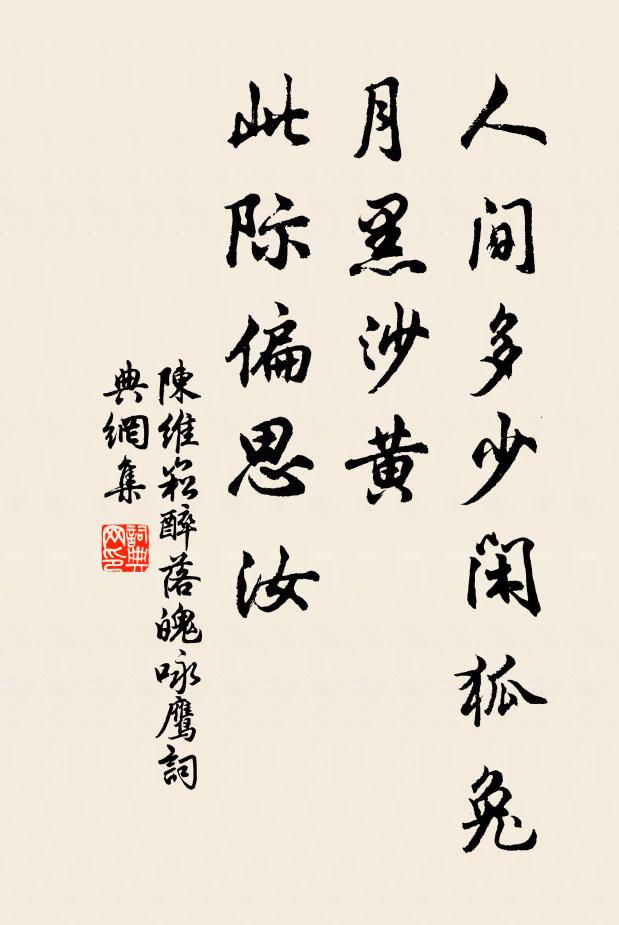 人间多少闲狐兔
月黑沙黄
此际偏思汝
陳維崧醉落魄咏鹰詞
典網集
詞典网印